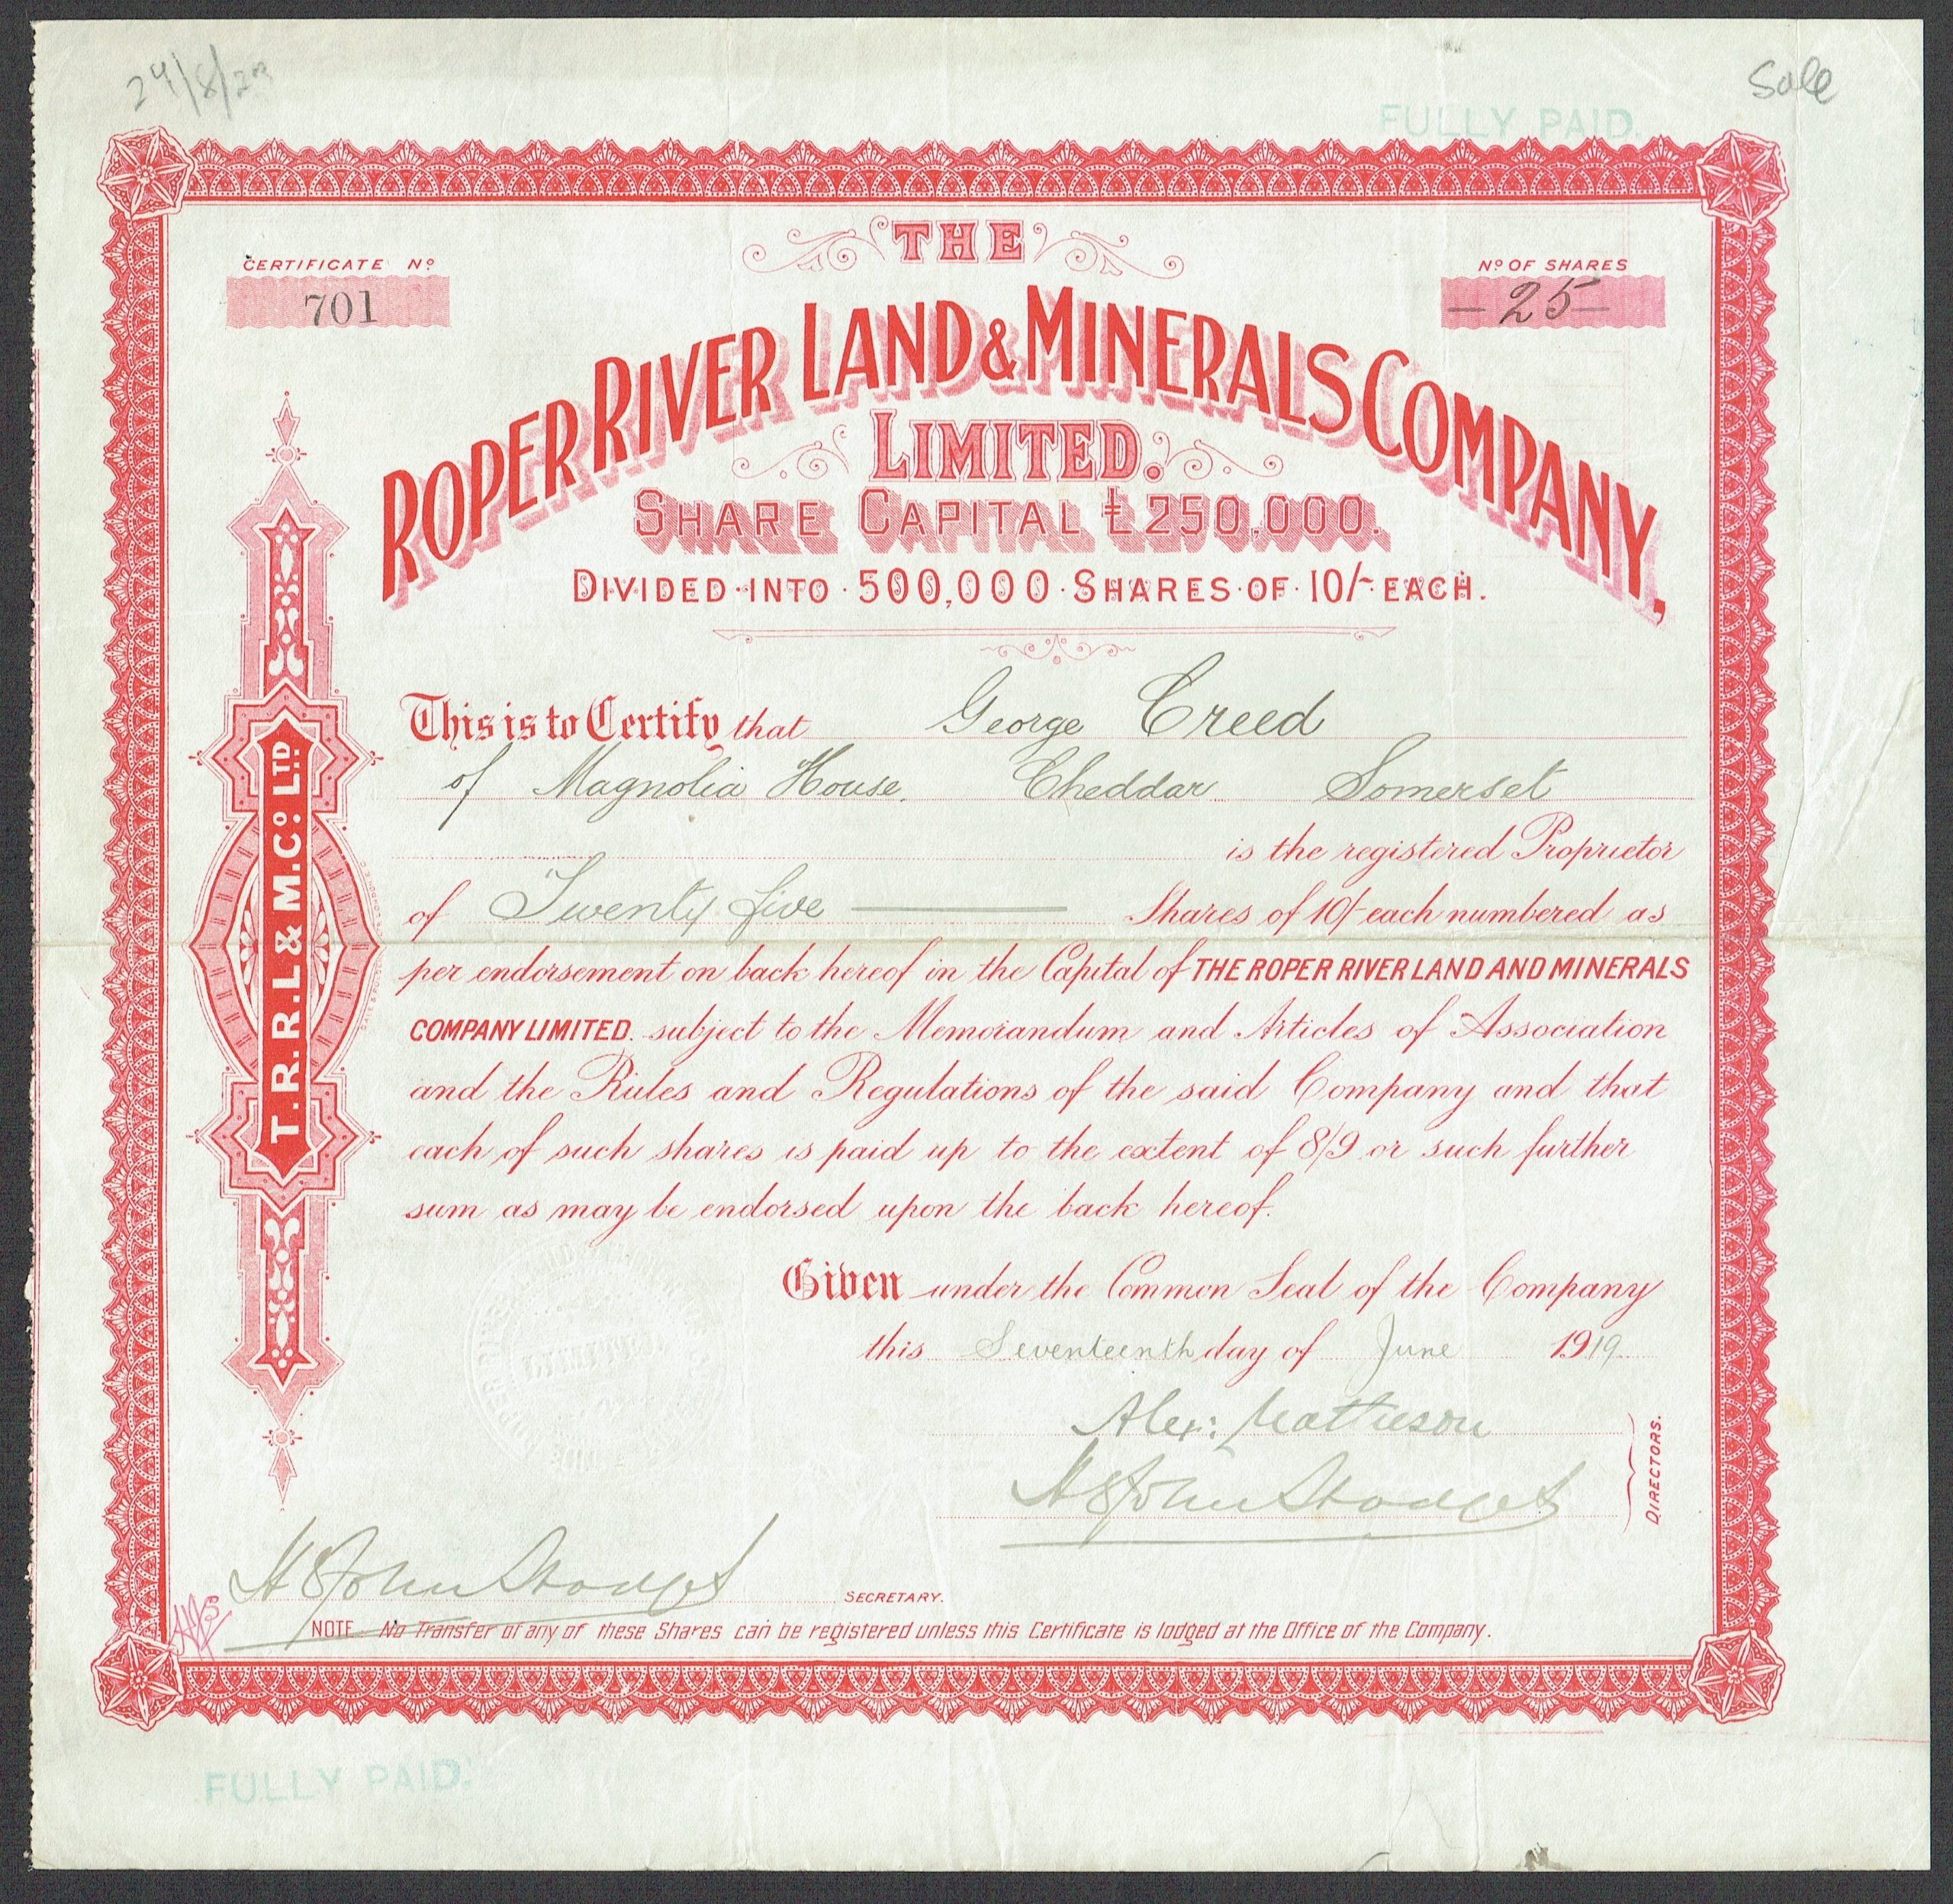 24/8/23
Sale
FULLY PAID.
THE
CERTIFICATE Nº
701
Nº OF SHARES
— 25 —
ROPER RIVER LAND & MINERALS COMPANY,
LIMITED.
SHARE CAPITAL £250,000.
DIVIDED · INTO · 500,000 · SHARES · OF · 10/- EACH.
This is to Certify that George Creed
of Magnolia House, Cheddar Somerset
is the registered Proprietor
of Twenty five Shares of 10/- each numbered as
per endorsement on back hereof in the Capital of THE ROPER RIVER LAND AND MINERALS
COMPANY LIMITED. subject to the Memorandum and Articles of Association
and the Rules and Regulations of the said Company and that
each of such shares is paid up to the extent of 8/9 or such further
sum as may be endorsed upon the back hereof.
T.R.R.L & M.Cº LTD.
Given under the Common Seal of the Company
this Seventeenth day of June 1919
LIMITED
Alex: Matheson
H StJohn Stodges
DIRECTORS.
H StJohn Stodges
SECRETARY.
NOTE. No Transfer of any of these Shares can be registered unless this Certificate is lodged at the Office of the Company.
FULLY PAID.